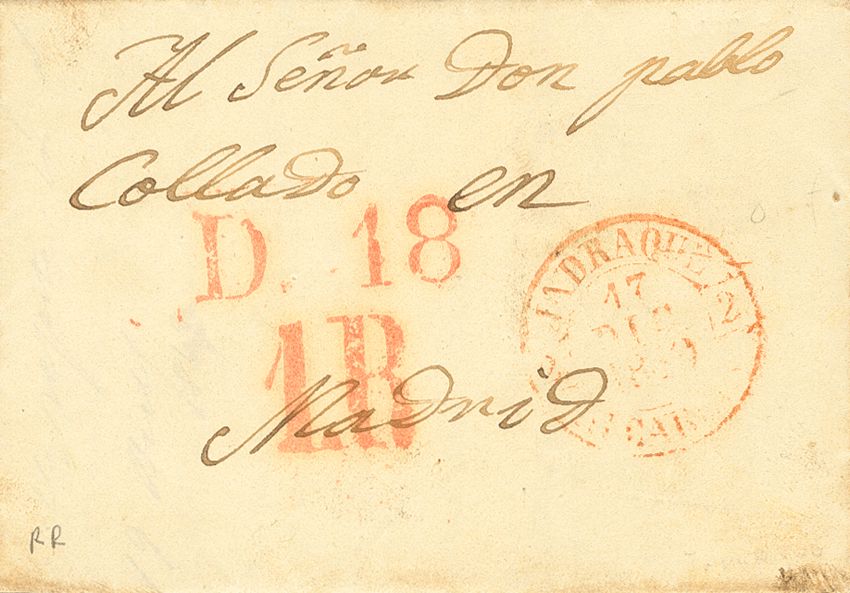 Al Señor Don pablo
Collado en
D. 18
JADRAQUE
17
1R
Madrid
RR